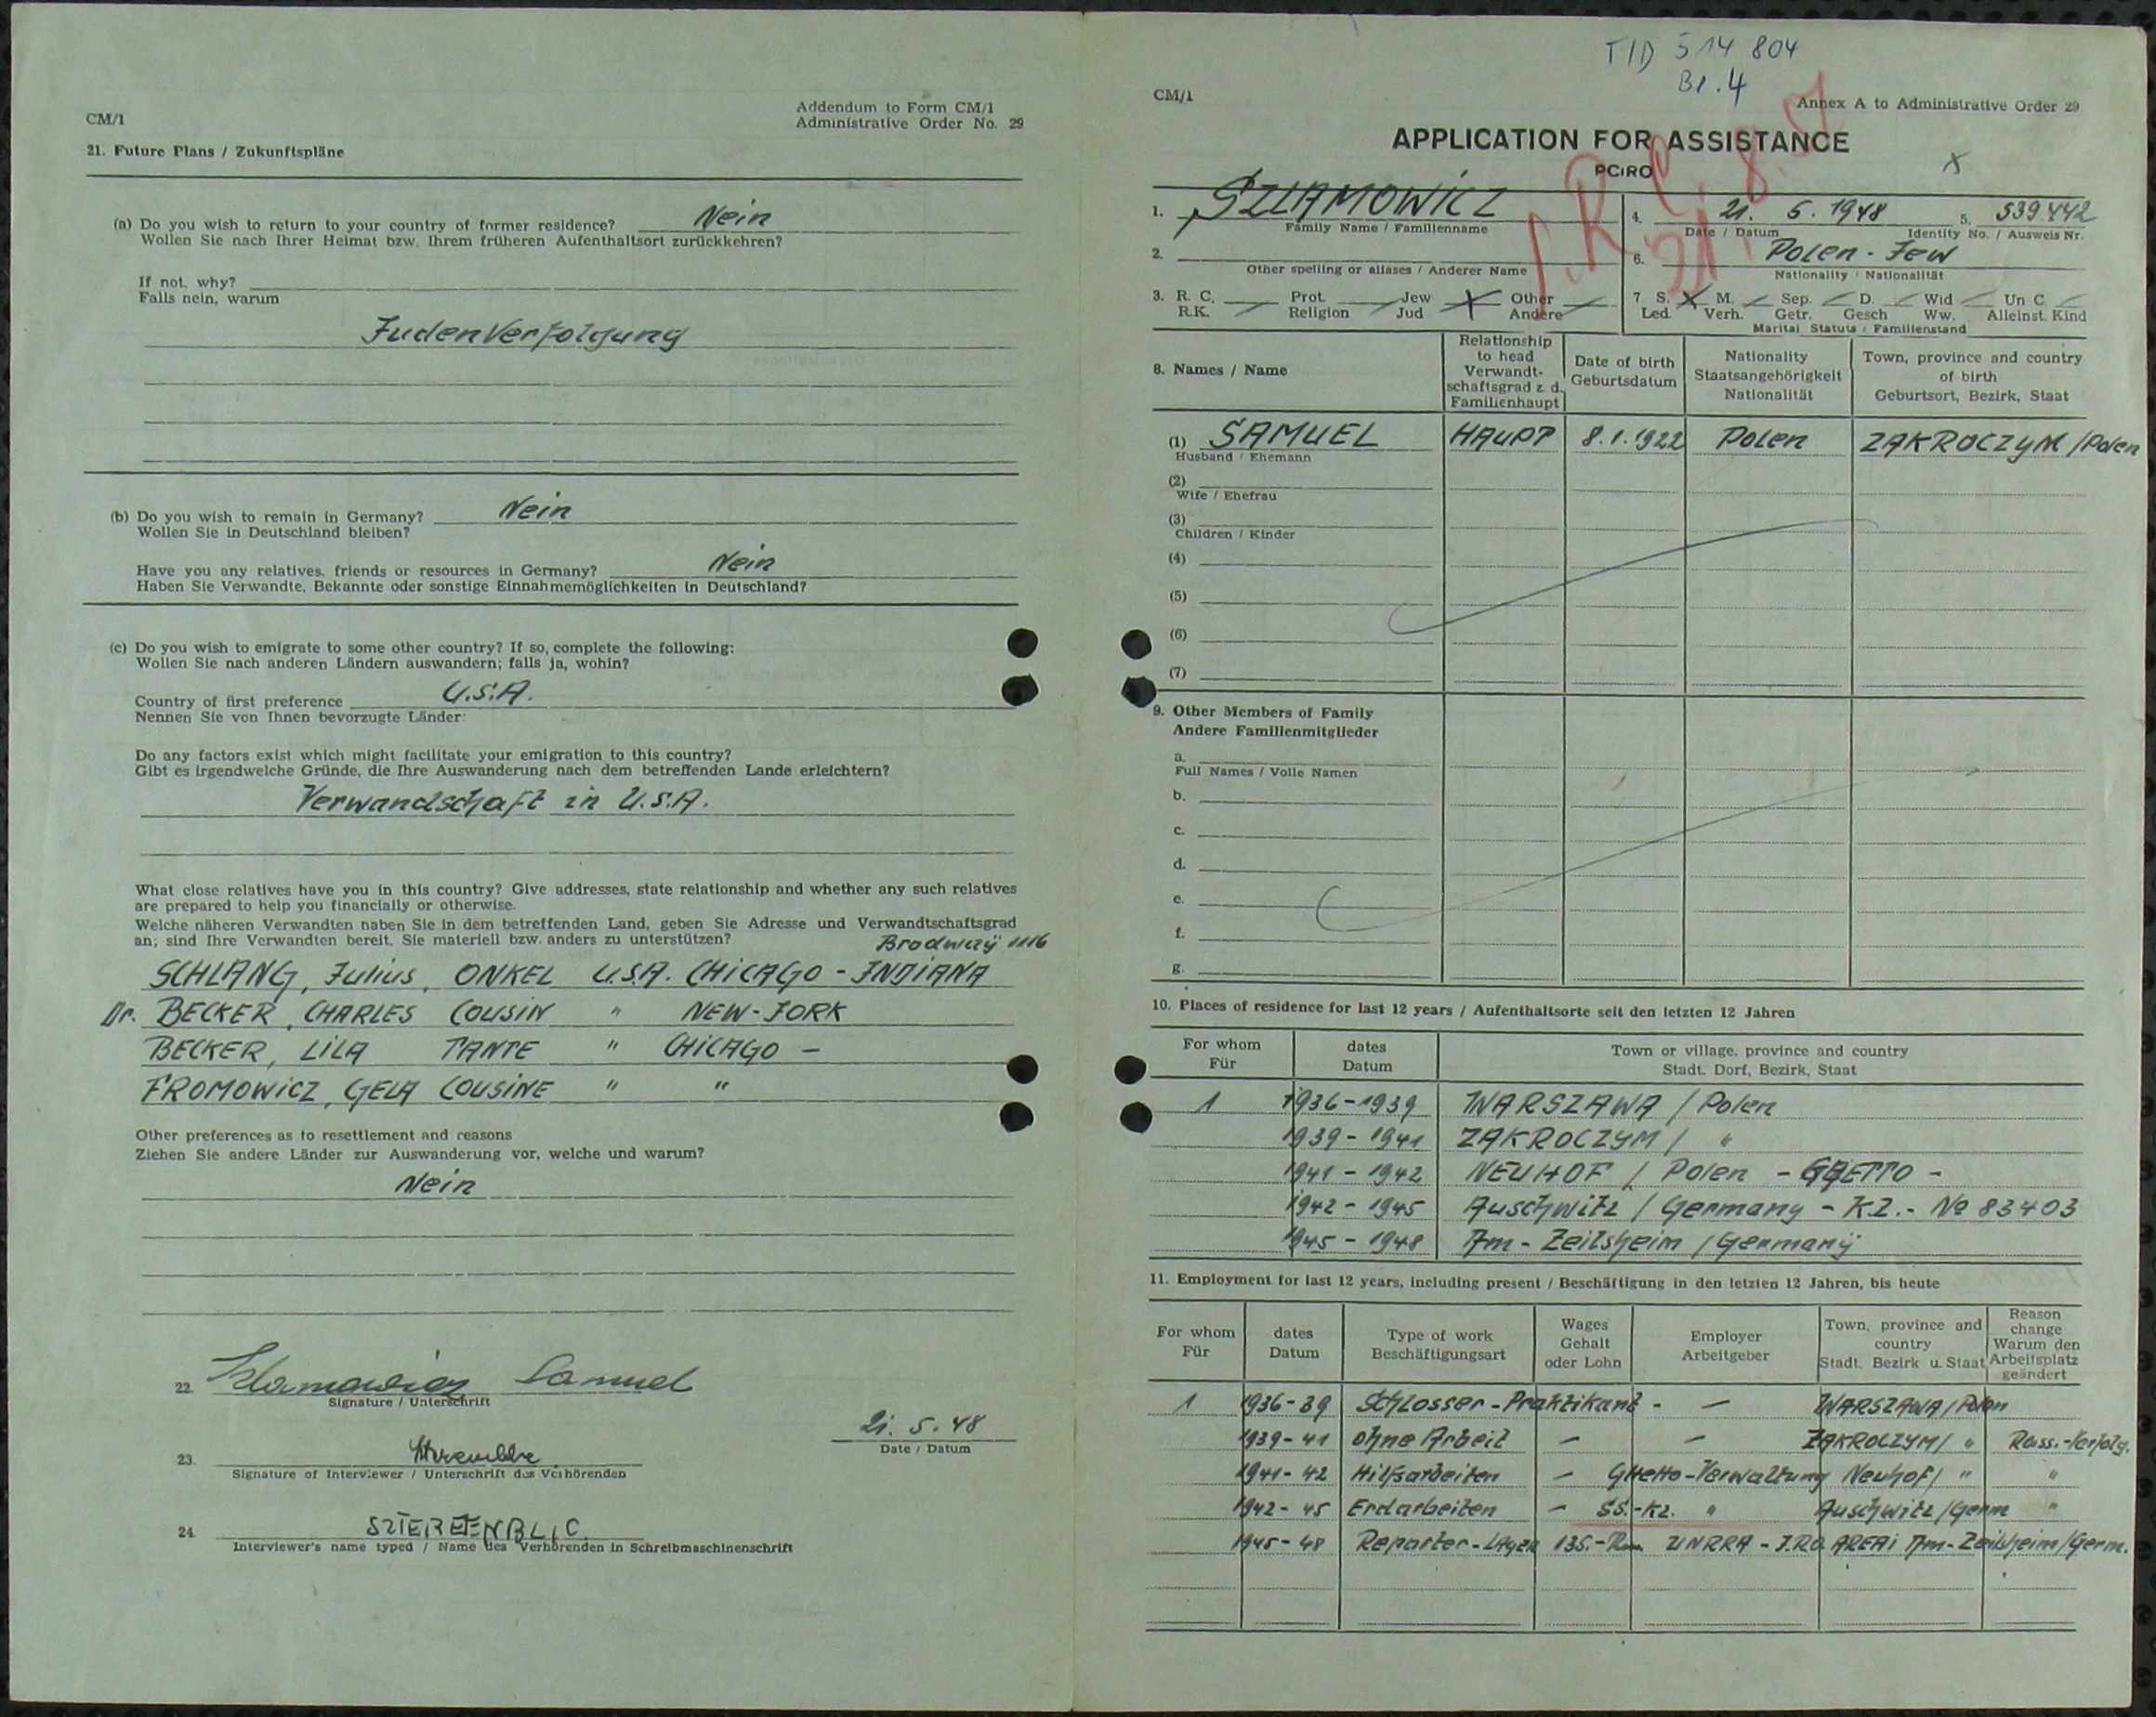 CM/1
Addendum to Form CM/1
Administrative Order No. 29
21. Future Plans / Zukunftspläne
(a) Do you wish to return to your country of former residence? Nein
Wollen Sie nach Ihrer Heimat bzw. Ihrem früheren Aufenthaltsort zurückkehren?
If not, why?
Falls nein, warum
Judenverfolgung
(b) Do you wish to remain in Germany? Nein
Wollen Sie in Deutschland bleiben?
Have you any relatives, friends or resources in Germany? Nein
Haben Sie Verwandte, Bekannte oder sonstige Einnahmemöglichkeiten in Deutschland?
(c) Do you wish to emigrate to some other country? If so, complete the following:
Wollen Sie nach anderen Ländern auswandern; falls ja, wohin?
Country of first preference U.S.A.
Nennen Sie von Ihnen bevorzugte Länder:
Do any factors exist which might facilitate your emigration to this country?
Gibt es irgendwelche Gründe, die Ihre Auswanderung nach dem betreffenden Lande erleichtern?
Verwandschaft in U.S.A.
What close relatives have you in this country? Give addresses, state relationship and whether any such relatives
are prepared to help you financially or otherwise.
Welche näheren Verwandten haben Sie in dem betreffenden Land, geben Sie Adresse und Verwandtschaftsgrad
an; sind Ihre Verwandten bereit, Sie materiell bzw. anders zu unterstützen? Brodway 1116
SCHLANG, Julius, ONKEL U.S.A. CHICAGO - INDIANA
Dr. BECKER, CHARLES COUSIN " NEW-JORK
BECKER, LILA TANTE " CHICAGO -
FROMOWICZ, GELA COUSINE " "
Other preferences as to resettlement and reasons
Ziehen Sie andere Länder zur Auswanderung vor, welche und warum?
Nein
22. Szlamowicz Samuel
Signature / Unterschrift
21. 5. 48
Date / Datum
23.
Signature of Interviewer / Unterschrift des Verhörenden
24.
Interviewer's name typed / Name des Verhörenden in Schreibmaschinenschrift
TID 514 804
Bl. 4
CM/1
Annex A to Administrative Order 29
APPLICATION FOR ASSISTANCE
PCIRO
X
1. SZLAMOWICZ
Family Name / Familienname
4. 21. 5. 1948 5. 539442
Date / Datum Identity No. / Ausweis Nr.
2.
Other spelling or aliases / Anderer Name
6. Polen - Jew
Nationality / Nationalität
3. R. C. Prot. Jew X Other
R.K. Religion Jud Andere
7. S. X M. Sep. D. Wid Un C.
Led. Verh. Getr. Gesch Ww. Alleinst. Kind
Marital Status / Familienstand
8. Names / Name
Relationship to head Verwandt-schaftsgrad z. d. Familienhaupt
Date of birth Geburtsdatum
Nationality Staatsangehörigkeit Nationalität
Town, province and country of birth Geburtsort, Bezirk, Staat
(1) SAMUEL HAUPT 8.1.1922 Polen ZAKROCZYM / Polen
Husband / Ehemann
(2)
Wife / Ehefrau
(3)
Children / Kinder
(4)
(5)
(6)
(7)
9. Other Members of Family
Andere Familienmitglieder
a.
Full Names / Volle Namen
b.
c.
d.
e.
f.
g.
10. Places of residence for last 12 years / Aufenthaltsorte seit den letzten 12 Jahren
For whom dates Town or village, province and country
Für Datum Stadt, Dorf, Bezirk, Staat
1 1936-1939 WARSZAWA / Polen
1939 - 1941 ZAKROCZYM / "
1941 - 1942 NEUHOF / Polen - GHETTO -
1942 - 1945 Auschwitz / Germany - KZ. - No 83403
1945 - 1948 Fm - Zeilsheim / Germany
11. Employment for last 12 years, including present / Beschäftigung in den letzten 12 Jahren, bis heute
For whom Für
dates Datum
Type of work Beschäftigungsart
Wages Gehalt oder Lohn
Employer Arbeitgeber
Town, province and country Stadt, Bezirk u. Staat
Reason change Warum den Arbeitsplatz geändert
1 1936-39 Schlosser-Praktikant - - WARSZAWA / Polen
1939-41 ohne Arbeit - - ZAKROCZYM / " Rass.-Verfolg.
1941-42 Hilfsarbeiten - Ghetto-Verwaltung Neuhof / " "
1942-45 Erdarbeiten - SS.-KZ. " Auschwitz / Germ "
1945-48 Reporter-Lager 135.-Rm. UNRRA - I.R.O. AREA1 Fm-Zeilsheim / Germ.